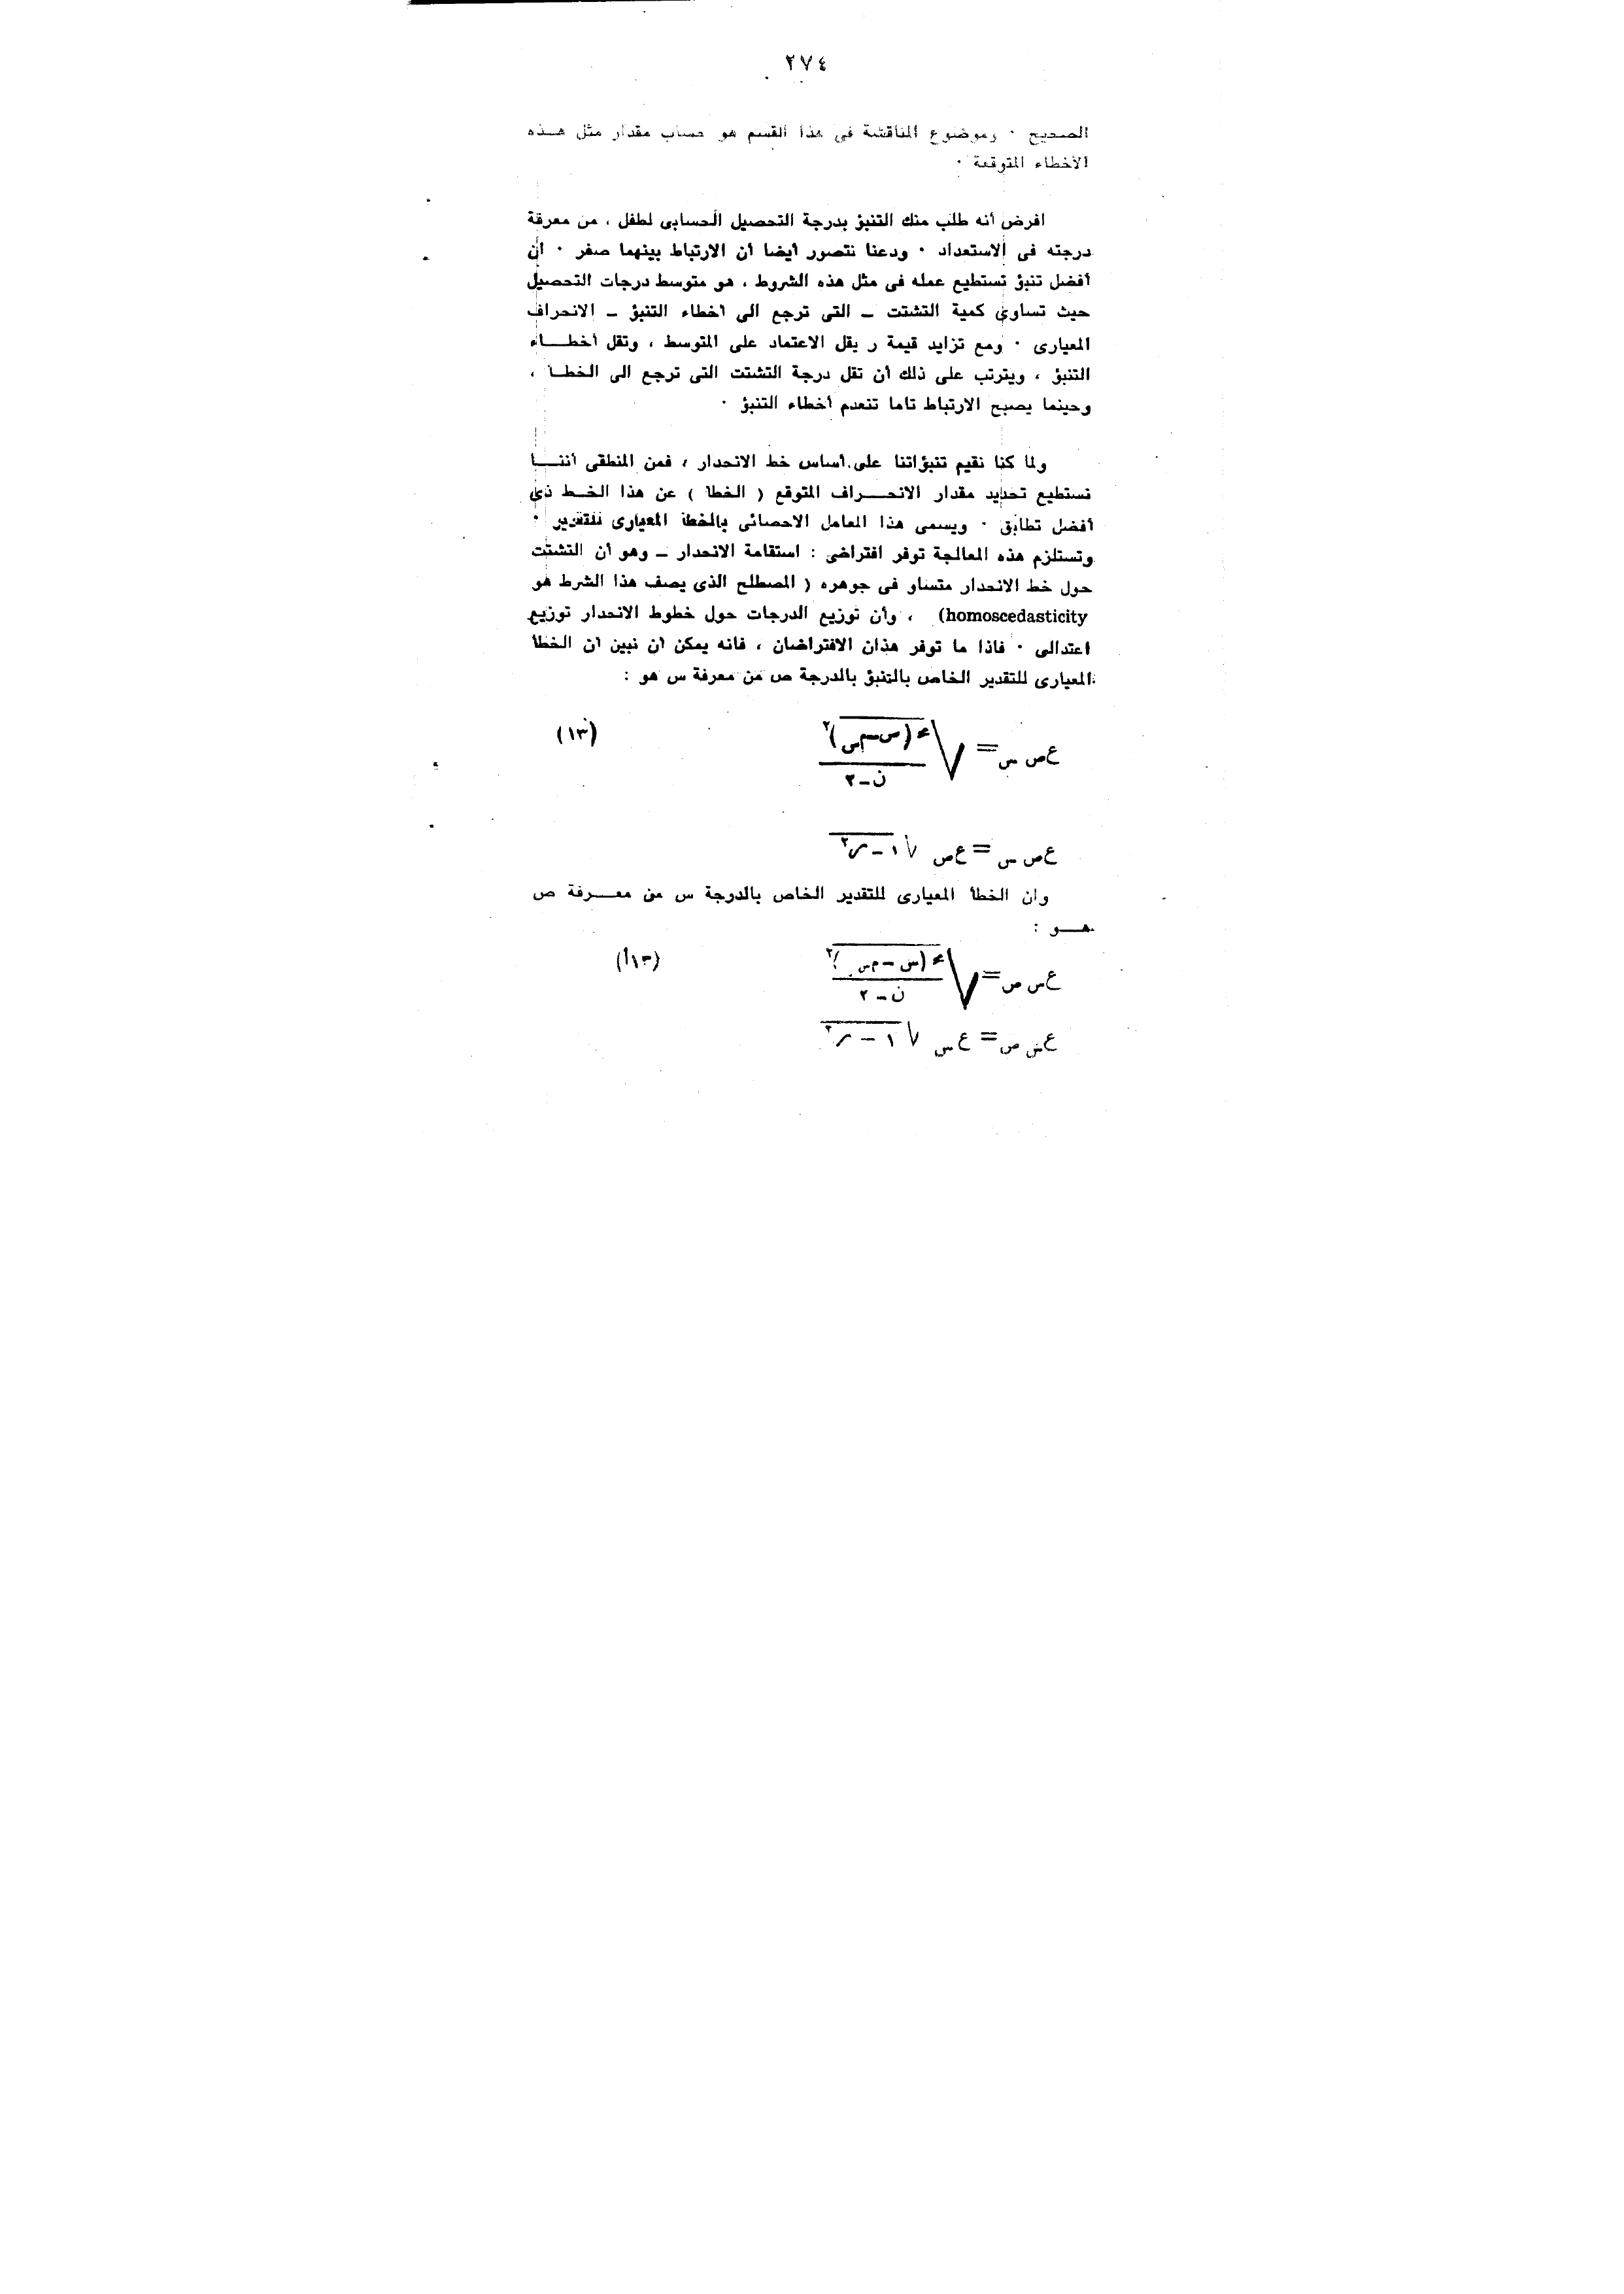 ٢٧٤
الصحيح ٠ وموضوع المناقشة فى هذا القسم هو حساب مقدار مثل هــذه
الأخطاء المتوقعة ٠
افرض أنه طلب منك التنبؤ بدرجة التحصيل الحسابى لطفل ، من معرفة
درجته فى الاستعداد ٠ ودعنا نتصور أيضا أن الارتباط بينهما صفر ٠ ان
أفضل تنبؤ تستطيع عمله فى مثل هذه الشروط ، هو متوسط درجات التحصيل
حيث تساوى كمية التشتت ــ التى ترجع الى أخطاء التنبؤ ــ الانحراف
المعيارى ٠ ومع تزايد قيمة ر يقل الاعتماد على المتوسط ، وتقل أخطـــاء
التنبؤ ، ويترتب على ذلك أن تقل درجة التشتت التى ترجع الى الخطــأ ،
وحينما يصبح الارتباط تاما تنعدم أخطاء التنبؤ ٠
ولما كنا نقيم تنبؤاتنا على أساس خط الانحدار ، فمن المنطقى أننـــا
نستطيع تحديد مقدار الانحـــراف المتوقع ( الخطأ ) عن هذا الخــط ذى
أفضل تطابق ٠ ويسمى هذا المعامل الاحصائى بالخطأ المعيارى للتقدير ٠
وتستلزم هذه المعالجة توفر افتراضى : استقامة الانحدار ــ وهو أن التشتت
حول خط الانحدار متساو فى جوهره ( المصطلح الذى يصف هذا الشرط هو
homoscedasticity) ، وأن توزيع الدرجات حول خطوط الانحدار توزيع
اعتدالى ٠ فاذا ما توفر هذان الافتراضان ، فانه يمكن أن نبين أن الخطأ
المعيارى للتقدير الخاص بالتنبؤ بالدرجة ص من معرفة س هو :
ع ص س = √ (١٣)
ن ــ ٢
ع ص س = ع ص √ ١ ــ ر٢
وان الخطأ المعيارى للتقدير الخاص بالدرجة س من معـــرفة ص
هـــو :
ع س ص = √ (١٣أ)
ن ــ ٢
ع س ص = ع س √ ١ ــ ر٢